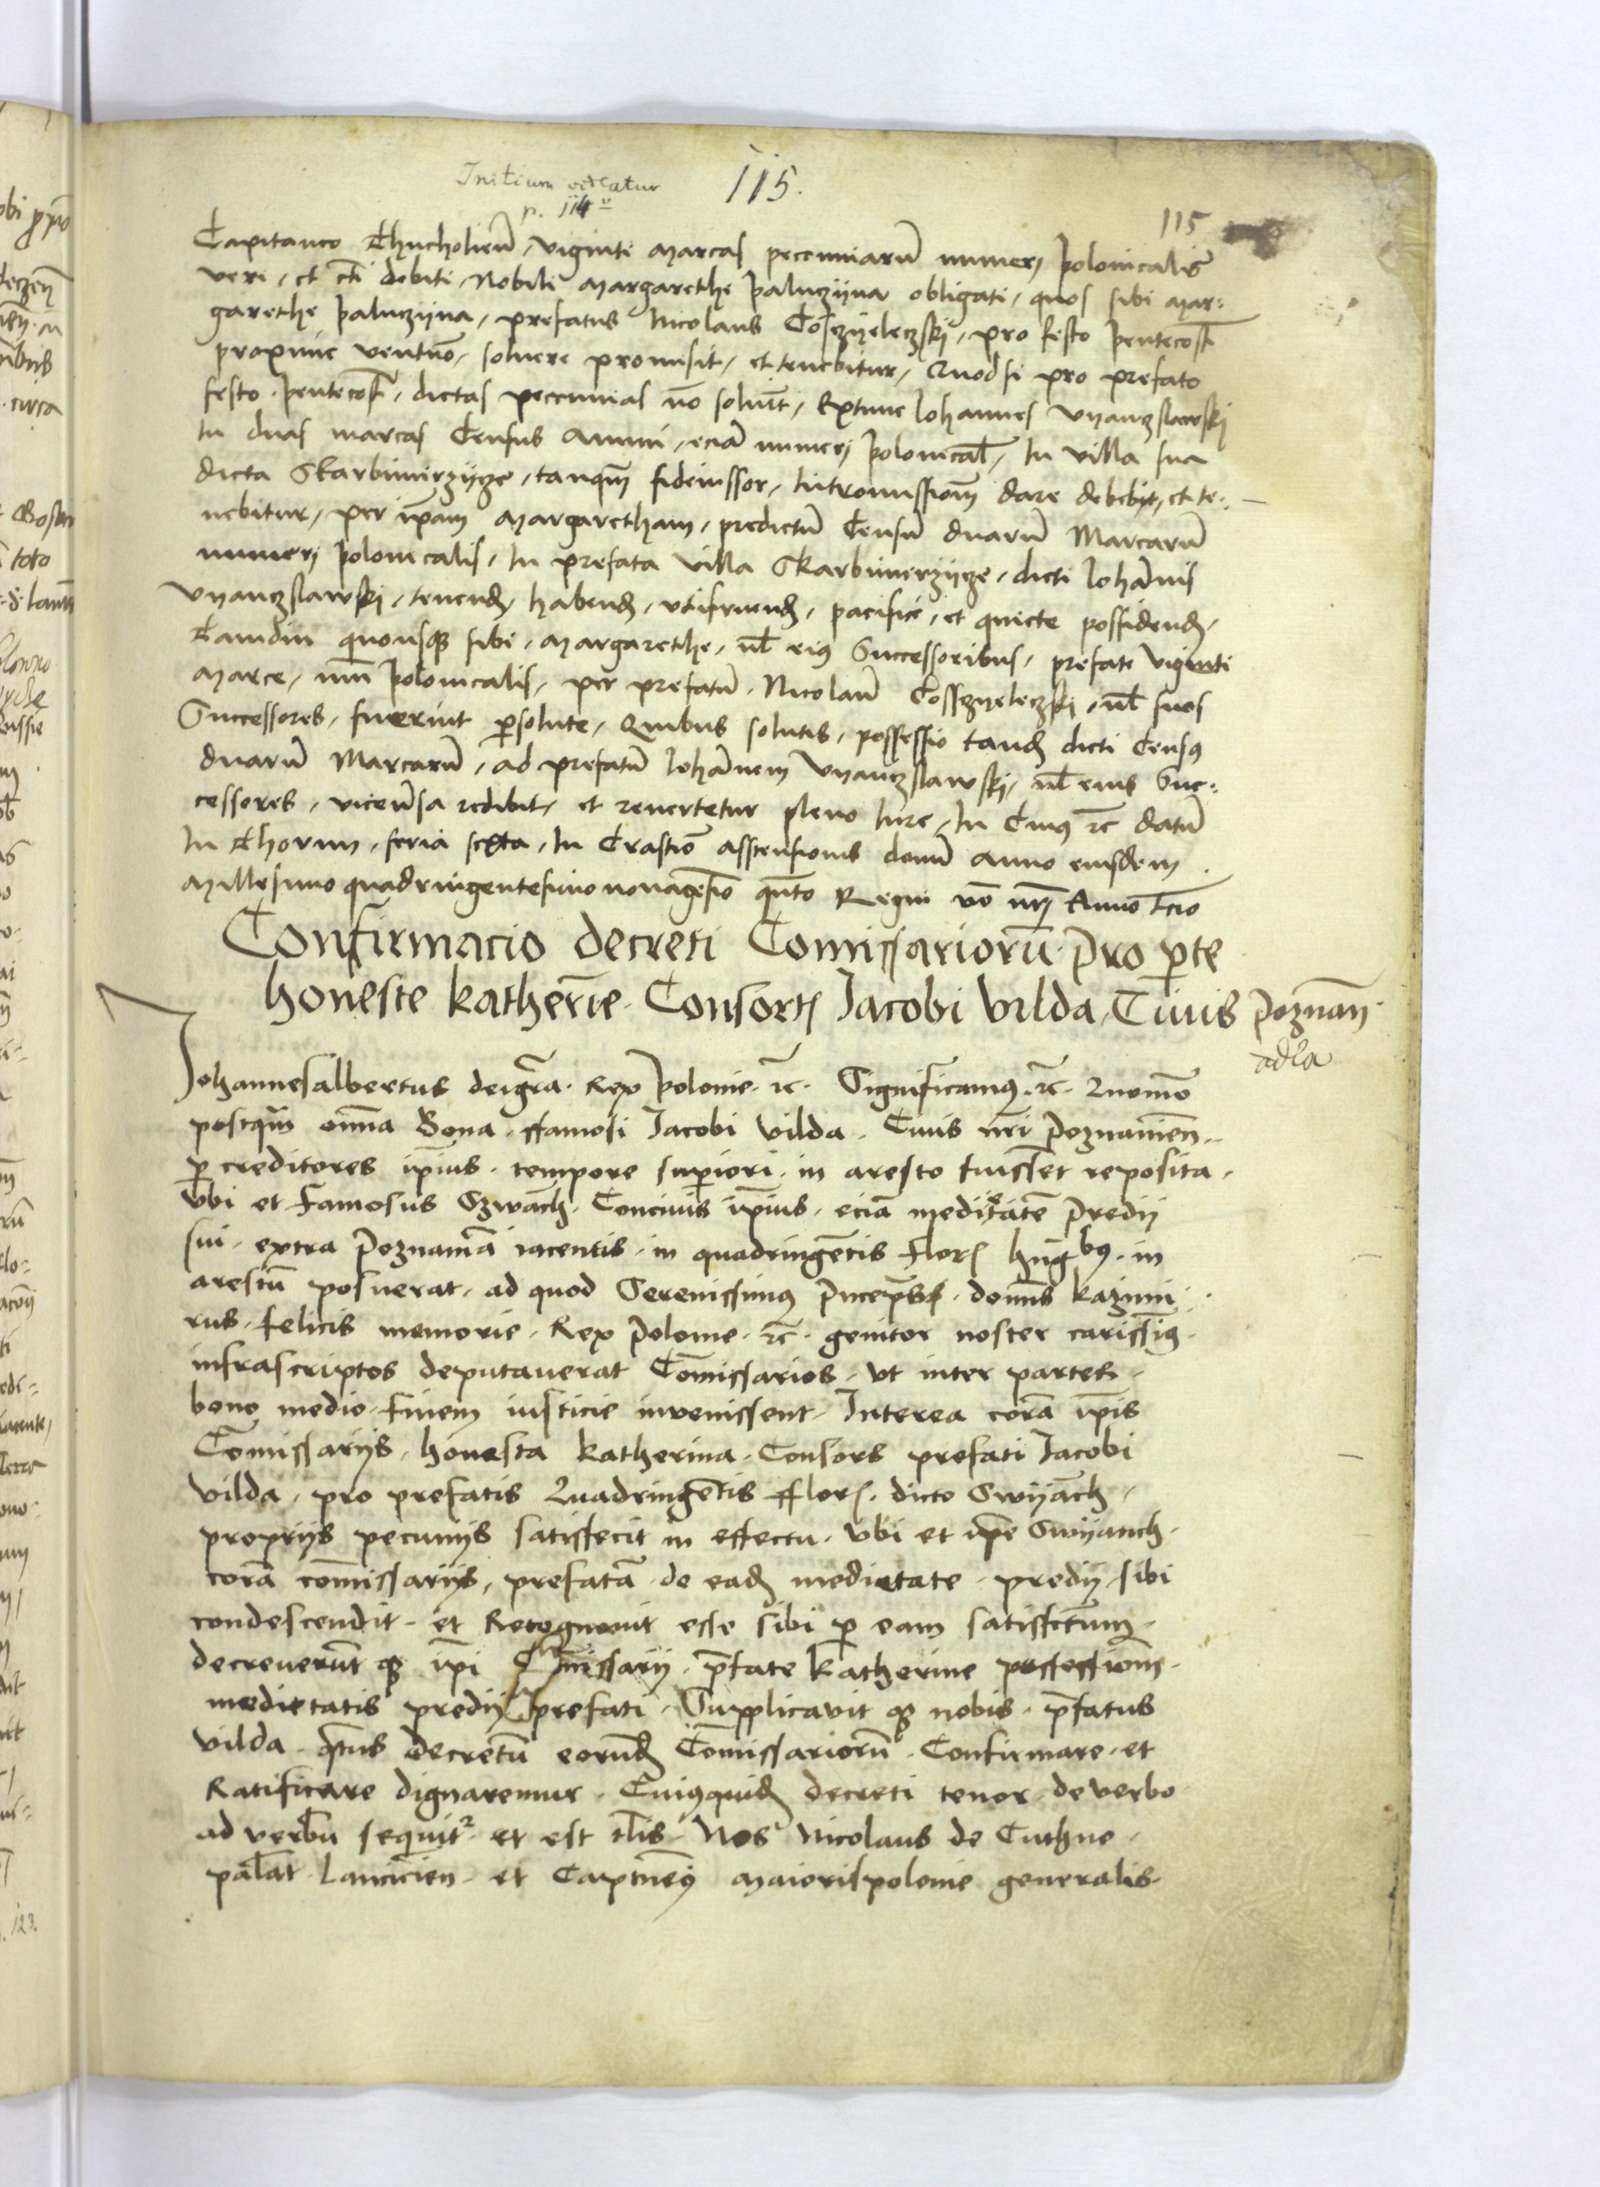 Initium videatur
p. 114 v
115.
115
Capitaneo Thucholien̄, viginti marcas pecuniarū numeri polonicalis
veri, et cti debiti, Nobili Margarethe paluczyna obligati, quos sibi Mar:
garethe paluczyna, prefatus Nicolaus Cosczyeleczski, pro festo pentecost
proxime ventuō, soluere promisit, et tenebitur, Quodsi pro prefato
festo pentecost, dictas peccunias nō soluīt, Extunc Iohannes Vyanczslawski
In duas marcas Census Annui, eciā numeri polonicał, In villa sua
dicta Skarbimirzycze, tanqm̄ fideiussor, Intromissionm̄ dare debebit, et te:
nebitur, per ip̄am Margaretham, predictū Censū duarū Marcarū
numeri polonicalis, In prefata villa Skarbimerzycze, dicti Iohānis
Vyanczslawski, tenend, habend, vtifruend, pacifice, et quiete possidend,
Tamdiu quousqȝ sibi, Margarethe, ul̄ eiꝰ Successoribus, prefate viginti
Marce, nūi polonicalis, per prefatū Nicolaū Cossczyeleczski, ul̄ suos
Successores, fuerint ꝑsolute, Quibus solutis, possessio tand dicti Censꝰ
duarū Marcarū, ad prefatū Iohānem Vyanczslawski, ul̄ eius Suc:
cessores, viceūsa redibit, et reuertetur pleno Iure, In Cuiꝰ rc̄ datū
In Thorun, feria sexta, In Crastiō asscensionis domī Anno eiusdem
Millesimo quadringentesimo nonagesīo qn̄to Regni vō nr̄i Anno Tcio
Confirmacio decreti Com̄issariorū pro ꝑte
honeste katherīe Consortꝭ Jacobi Vilda, Ciuis Poznan̄
adla
Johannesalbertus deigr̄a Rex polonie rc̄. Significamꝰ rc̄ Quomō
postqm̄ om̄ia Bona ffamosi Jacobi Vilda, Ciuis nr̄i poznanien̄
ꝑ creditores ip̄ius tempore sup̄iori in aresto fuisset reposita
vbi et famosus Szwāch Conciuis ip̄ius eciā medietatē predii
sui extra poznaniā iacentis in quadringētis florꝭ hūgbꝰ in
arestū posuerat ad quod Serenissimꝰ princeps domīs kazimi
rus felicis memorie Rex polonie rc̄ genitor noster carissīꝰ
infrascriptos deputauerat Com̄issarios vt inter partes
bono medio finem iusticie invenissent. Interea corā ip̄is
Com̄issariis honesta katherina Consors prefati Jacobi
Vilda pro prefatis Quadringētis fflorꝭ dicto Swyāch
propriis pecuniis satisfecit in effectu vbi et ip̄e Swyanch
corā com̄issariis, prefatā de ead medietate predii sibi
condescendit et Recognouit esse sibi ꝑ eam satisfctum
decreuerūt qȝ ip̄i Com̄issarii pfate katherine possessionm̄
medietatis predii prefati Supplicavit qȝ nobis pfatus
Vilda qtus decretū eorūd Com̄issariorū Confirmare et
Ratificare dignaremur Cuiꝰquid decreti tenor deverbo
ad verbū sequitr et est tlis Nos Nicolaus de Cuthno
pal̄at Lancicien̄ et Captneꝰ Maiorispolonie generalis